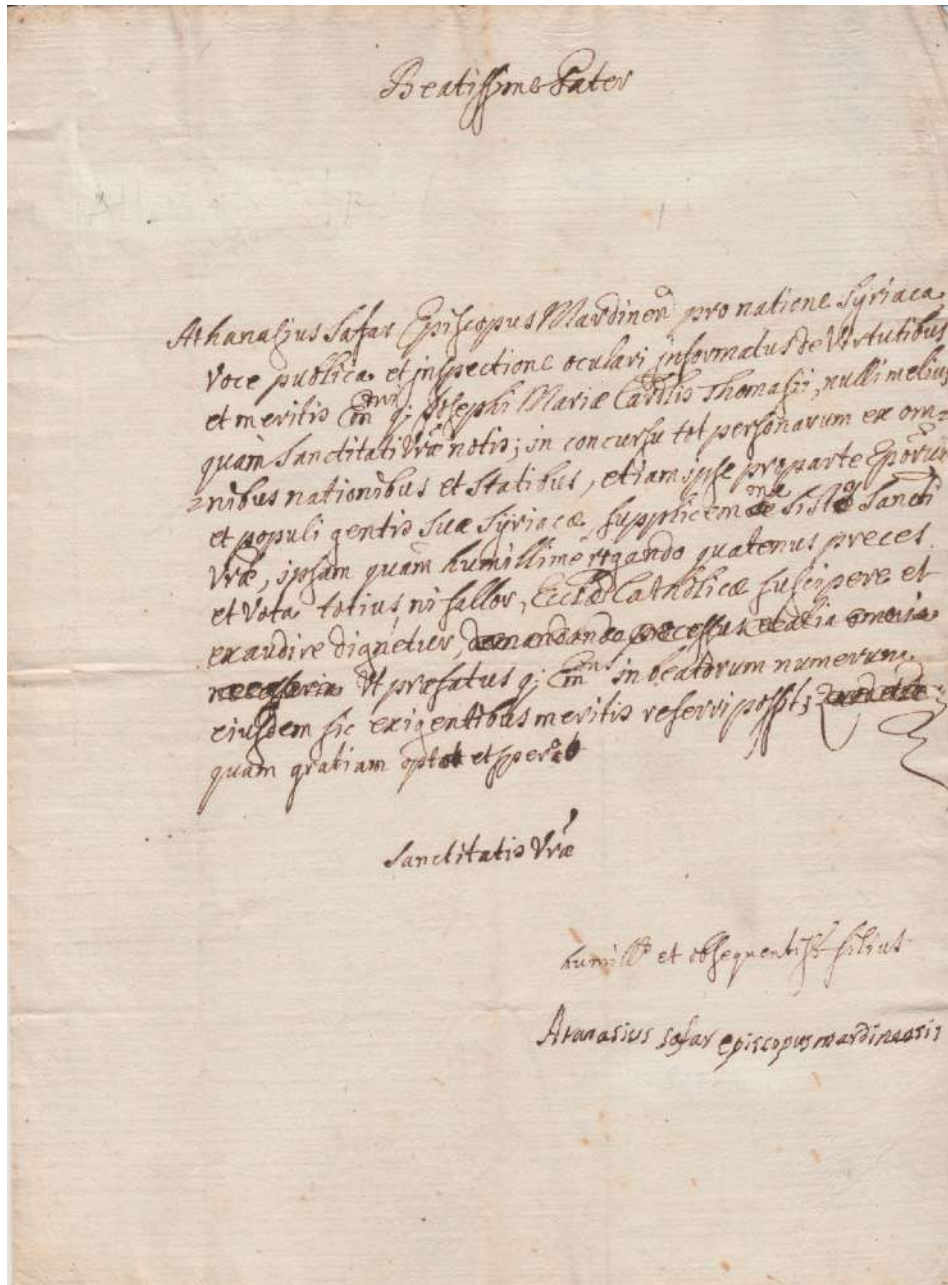 Beatissime Pater
Athanasius Safar Episcopus Mardinen pro natione Syriaca
voce publica et inspectione oculari informatus de Virtutibus
et meritis Emi q; Josephi Mariæ Cardlis Thomasii, nulli melius
quàm Sanctitati Vræ notis; in concursu tot personarum ex om=
=nibus nationibus et statibus, etiam ipse pro parte Eporum
et populi gentis suæ Syriacæ, supplicem me sisto Sancti
Vræ, ipsam quàm humillime rogando quatenus preces
et vota totius ni fallor, Ecclæ Catholicæ suscipere et
exaudire dignetur, demandando processus et alia omnia
necessaria Ut præfatus q; Emus in beatorum numerum
eiusdem sic exigentibus meritis referri possit;
quam gratiam opto et spero
Sanctitatis Vræ
humills et obsequentiss filius
Atanasius Safar episcopus mardinensis